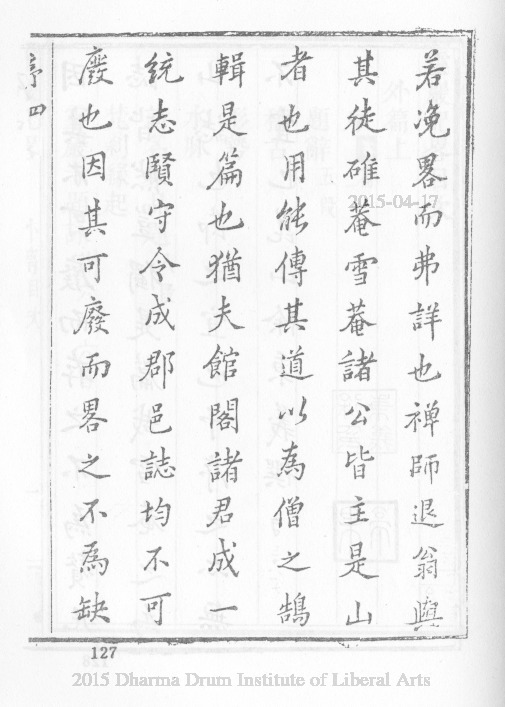 若浼畧而弗詳也禅師退翁與
其徒碓菴雪菴諸公皆主是山
者也用能傳其道以為僧之鵠
輯是篇也猶夫館閣諸君成一
統志賢守令成郡邑誌均不可
廢也因其可廢而畧之不為缺
序四
2015-04-17
127
2015 Dharma Drum Institute of Liberal Arts